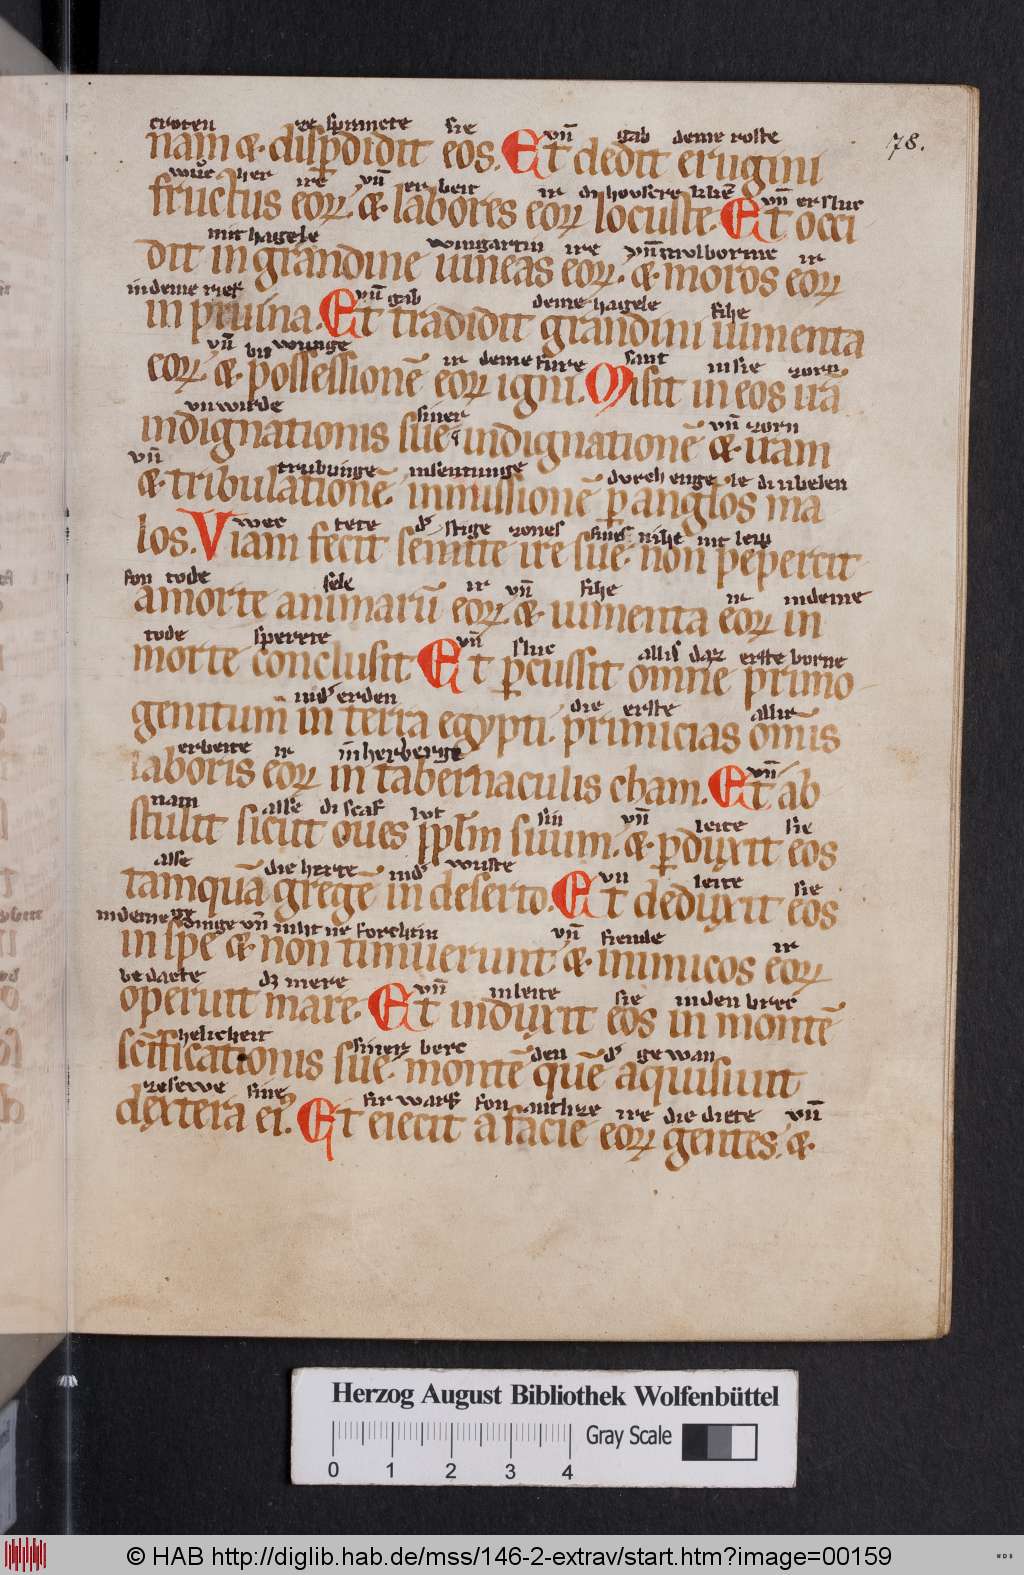 croten ze spruncte sie vn̄ gab deme roste
nam &. disꝑdidit eos. Et dedit erugini 78.
wůc her ire vn̄ er beit ir vn̄ er sluc
fructus eoꝝ. &. labores eoꝝ locuste. Et occi
mit hagele wingartin ire vn̄ mulborme ir
dit in grandine uineas eoꝝ. &. moros eoꝝ
indeme rief vn̄ gab deme hagele fihe
in pruina. Et tradidit grandini iumenta
vn̄ ir deme fure sant in sie zorn
eoꝝ. &. possessionē eoꝝ igni. Misit in eos irā
vnwirde siner vn̄ zorn
indignationis sue indignationē &. iram
vn̄ insentunge durch enge le di ubelen
&. tribulationē. inmissionē ꝑ angłos ma
wec tete stige zornes sines niht nit
los. Viam fecit semite ire sue. non pepercit
fon tode sele ir vn̄ fihe ir indeme
a morte animarū eoꝝ &. iumenta eoꝝ in
tode sperrete vn̄ sluc allis daz erste borne
morte conclusit Et ꝑcussit omne primo
erden die erste allir
genitum in terra egypti. primicias om̄is
erbeite ir in herberge vn̄
laboris eoꝝ in tabernaculis cham. Et ab
nam alse di scaf lut sin vn̄ leite sie
stulit sicut oues ppłm suum. &. ꝑduxit eos
alse die herte wuste vn leite sie
tamquā gregē in deserto. Et deduxit eos
indeme vn̄ niht ne forchtin vn̄ fiende ir
in spe &. non timuerunt &. inimicos eoꝝ
be dacte dz mere vn̄ inleite sie inden berc
operuit mare. Et induxit eos in montē
helicheit siner berc den ge wan
sc̄ificationis sue. montē quē aquisiuit
zesewe sine fir warf fon antlize ire die diete vn̄
dextera ei᾽. Et eiecit a facie eoꝝ gentes. &.
Herzog August Bibliothek Wolfenbüttel
Gray Scale
0 1 2 3 4
© HAB http://diglib.hab.de/mss/146-2-extrav/start.htm?image=00159